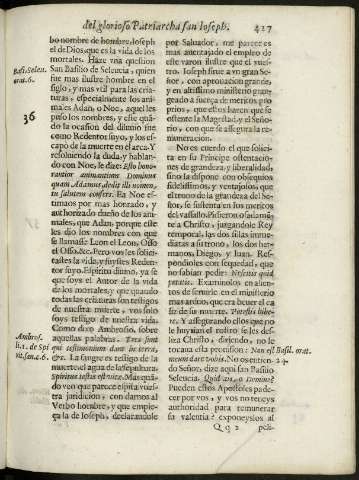 del glorioso Patriarcha san Ioseph. 427
bo nombre de hombre, Ioseph
el de Dios, que es la vida de los
mortales. Haze vna question
Basi. Seleu. San Basilio de Seleucia, quien
orat. 6. fue mas ilustre hombre en el
siglo, y mas vtil para las criaturas,
especialmente los animales
36 Adan, o Noe, aquel les
puso los nombres, y este quando
la ocasion del diluuio fue
como Redentor suyo, y los escapó
de la muerte en el arca. Y
resoluiendo la duda, y hablando
con Noe, le dize: Esto honorantior
animantium Dominus
quam Adamus, dedit illis nomen,
tu salutem confers. Ea Noe estimaos
por mas honrado, y
authorizado dueño de los animales,
que Adan, porque este
les dio los nombres con que
se llamasse Leon el Leon, Osso
el Osso, &c. Pero vos les solicitastes
la vida, y fuystes Redentor
suyo. Espiritu diuino, ya se
que soys el Autor de la vida
de los mortales, y que quando
todas las criaturas son testigos
de nuestra muerte, vos solo
soys testigo de nuestra vida.
Como dixo Ambrosio, sobre
Ambros. aquellas palabras, Tres sunt
li. 1. de Spi qui testimonium dant in terra,
rit. san. c. 6. &c. La sangre es testigo de la
muerte el agua de la sepultura.
Spiritus testis est vitæ. Mas quãdo
veo que parece espira vuestra
juridicion, con darnos al
Verbo hombre, y que empieça
la de Ioseph, declarandole
por Saluador, me parece es
mas auentajado el empleo de
este varon ilustre que el vuestro.
Ioseph sirue a vn gran Señor,
con aprouacion grande,
y en altissimo ministerio grangeado
a fuerça de meritos propios,
y entiendo que es lo que se
ostente la Magestad, y el Señorio,
con que se assegura la remuneracion.
No es cuerdo el que solicita
en su Principe ostentaciones
de grandeza, y liberalidad,
sino la dispone con obsequios
fidelissimos, y ventajosos, que
el trono de la grandeza del Señor,
se sustenta en los meritos
del vassallo. Pidieron osadamẽte
a Christo, juzgandole Rey
temporal, las dos sillas inmediatas
a su trono, los dos hermanos,
Diego, y Iuan. Respondioles
con sequedad, que
no sabian pedir: Nescitis quid
petatis. Examinolos en alientos
de seruirle en el ministerio
mas arduo, que era beuer el caliz
de su muerte. Potestis bibere.
Y assegurando ellos que no
le huyria el rostro se les desuia
Christo, diziendo, no le
tocaua esta prouision: Non est Basil. orat.
meum dare vobis. No os entiendo 24.
Señor, dize aqui san Basilio
Seleucia. Quid ais, o Domine?
Pueden estos Apostoles padecer
por vos, y vos no teneys
authoridad para remunerar
su valentia? exponeyslos al
Qq 2 peli-